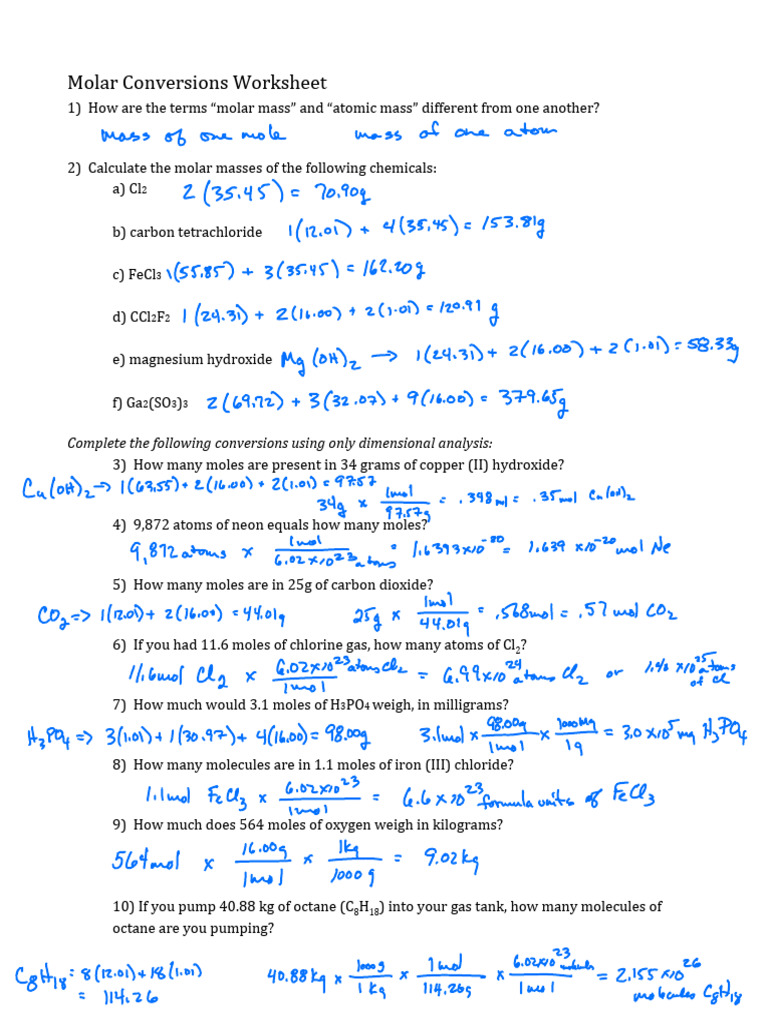 Molar Conversions Worksheet
1) How are the terms “molar mass” and “atomic mass” different from one another?
mass of one mole mass of one atom
2) Calculate the molar masses of the following chemicals:
a) Cl2 2(35.45) = 70.90g
b) carbon tetrachloride 1(12.01) + 4(35.45) = 153.81g
c) FeCl3 1(55.85) + 3(35.45) = 162.20g
d) CCl2F2 1(24.31) + 2(16.00) + 2(1.01) = 120.91 g
e) magnesium hydroxide Mg(OH)2 → 1(24.31) + 2(16.00) + 2(1.01) = 58.33g
f) Ga2(SO3)3 2(69.72) + 3(32.07) + 9(16.00) = 379.65g
Complete the following conversions using only dimensional analysis:
3) How many moles are present in 34 grams of copper (II) hydroxide?
Cu(OH)2 → 1(63.55) + 2(16.00) + 2(1.01) = 97.57
34g x 1mol / 97.57g = .348mol = .35mol Cu(OH)2
4) 9,872 atoms of neon equals how many moles?
9,872 atoms x 1mol / 6.02x10^23 atoms = 1.6393x10^-20 = 1.639 x10^-20 mol Ne
5) How many moles are in 25g of carbon dioxide?
CO2 => 1(12.01) + 2(16.00) = 44.01g 25g x 1mol / 44.01g = .568mol = .57 mol CO2
6) If you had 11.6 moles of chlorine gas, how many atoms of Cl2?
11.6mol Cl2 x 6.02x10^23 atoms Cl2 / 1mol = 6.99x10^24 atoms Cl2 or 1.40 x10^25 atoms of Cl
7) How much would 3.1 moles of H3PO4 weigh, in milligrams?
H3PO4 => 3(1.01) + 1(30.97) + 4(16.00) = 98.00g 3.1mol x 98.00g / 1mol x 1000mg / 1g = 3.0x10^5 mg H3PO4
8) How many molecules are in 1.1 moles of iron (III) chloride?
1.1mol FeCl3 x 6.02x10^23 / 1mol = 6.6x10^23 formula units of FeCl3
9) How much does 564 moles of oxygen weigh in kilograms?
564mol x 16.00g / 1mol x 1kg / 1000g = 9.02kg
10) If you pump 40.88 kg of octane (C8H18) into your gas tank, how many molecules of
octane are you pumping?
C8H18 = 8(12.01) + 18(1.01) = 114.26 40.88kg x 1000g / 1kg x 1mol / 114.26g x 6.02x10^23 molecules / 1mol = 2.155x10^26 molecules C8H18